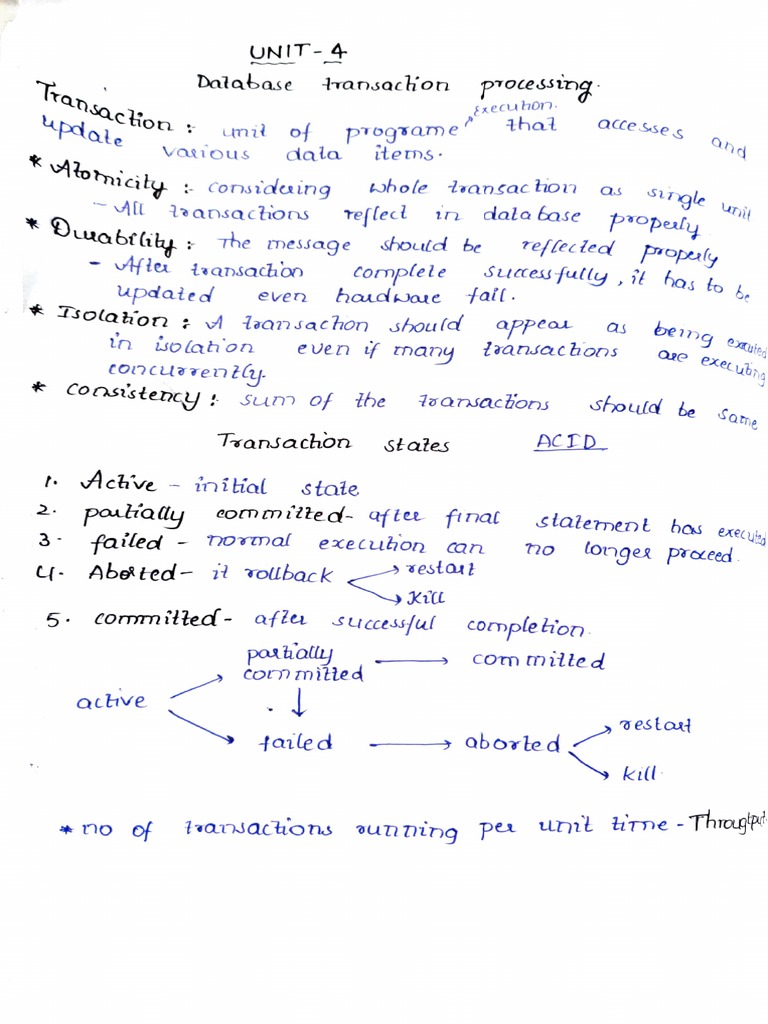 UNIT - 4
Database transaction processing.
Transaction : unit of programe execution that accesses and
update various data items.
* Atomicity :- considering whole transaction as single unit
- All transactions reflect in database properly
* Durability : The message should be reflected properly
- After transaction complete successfully, it has to be
updated even hardware fail.
* Isolation : A transaction should appear as being executed
in isolation even if many transactions are executing
concurrently.
* consistency : sum of the transactions should be same
Transaction states ACID
1. Active - initial state
2. partially committed - after final statement has executed
3. failed - normal execution can no longer proceed.
4. Aborted - it rollback → restart
→ kill
5. committed - after successful completion.
partially committed → committed
active
↓
failed → aborted → restart
→ kill.
* no of transactions running per unit time - Throughput.